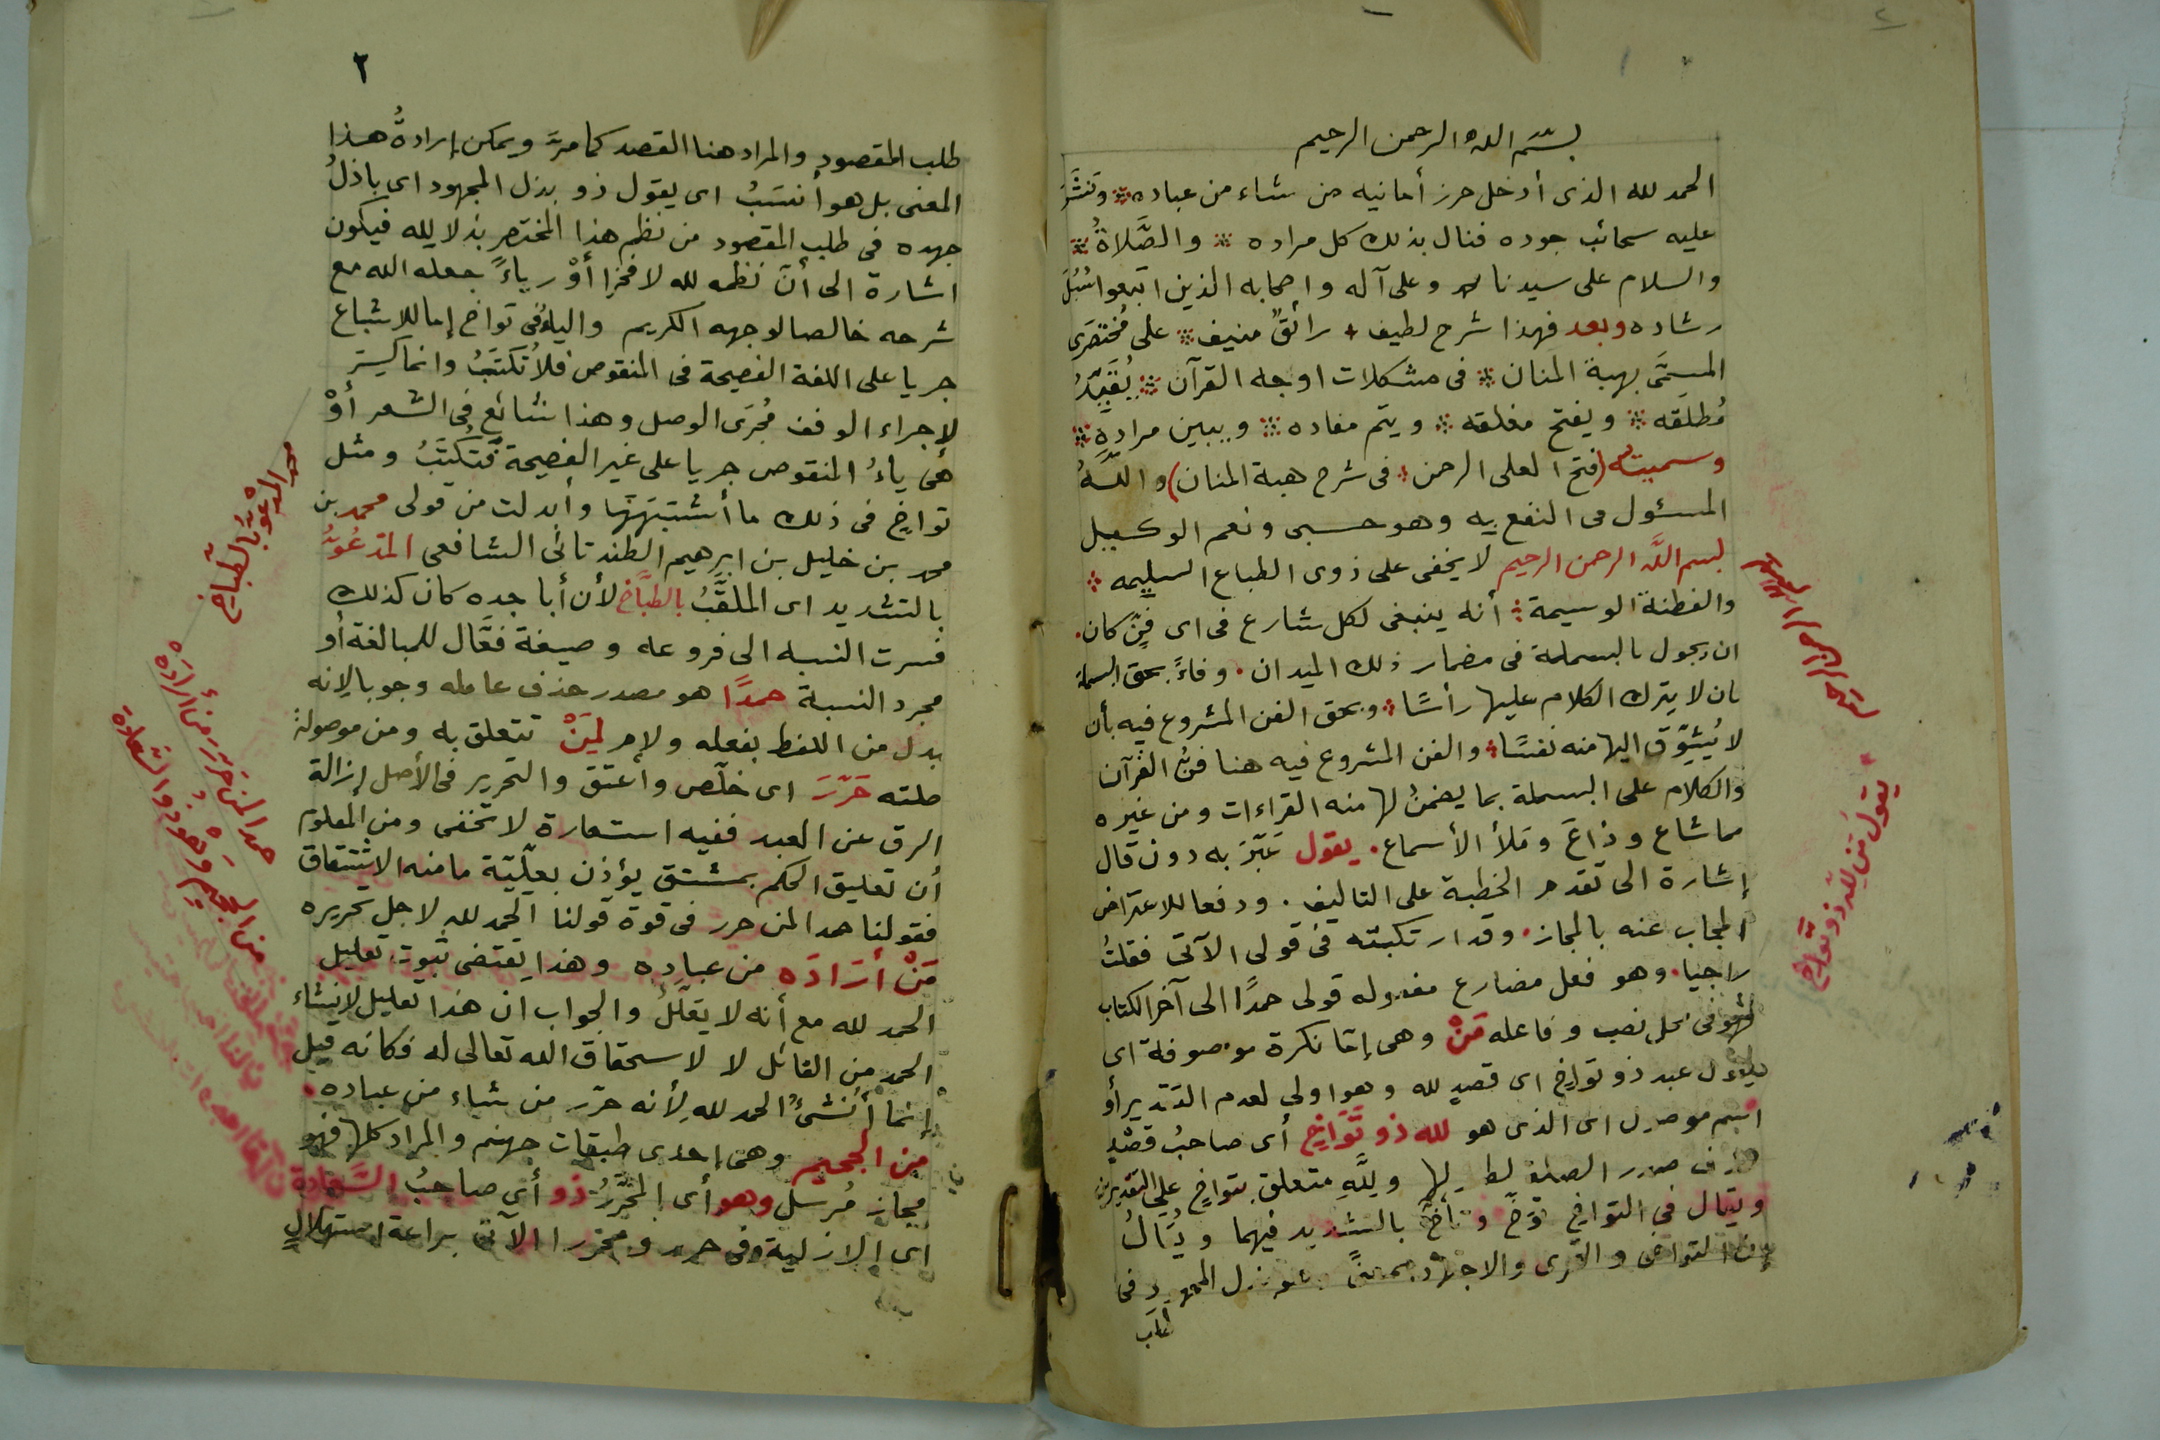 بسم الله الرحمن الرحيم
الحمد لله الذى أدخل حرز أمانيه من شاء من عباده ونَشَرَ
عليه سحائب جوده فنال بذلك كل مراده والصَّلاةُ
والسلام على سيدنا محمد وعلى آله واصحابه الذين اتبعوا سُبُلَ
رشاده وبعد فهذا شرح لطيف رائقٌ منيف على مُخْتصَرِى
المسمَّى بهبة المنان فى مشكلات اوجه القرآن يُقَيِّدُ
مُطلَقه ويفتح مغلقه ويتم مفاده ويبين مراده
وسميته (فتح العلى الرحمن فى شرح هبة المنان) واللهُ
المسئول فى النفع به وهو حسبى ونعم الوكيل
بسم الله الرحمن الرحيم لا يخفى على ذوى الطباع السليمه
والفطنة الوسيمة أنه ينبغى لكل شارع فى اى فنٍّ كان
ان يجول بالبسملة فى مضمار ذلك الميدان وفاءً بحق البسملة
بان لا يترك الكلام عليها رأسًا وبحق الفن المشروع فيه بأن
لا يُشَوِّق اليها منه نفسًا والفن المشروع فيه هنا فنُّ القرآن
والكلام على البسملة بما يضمنُ لها منه القراءات ومن غيره
مما شاع وذاعَ وملأ الأسماع يقول عَبَّرَ به دون قال
إشارة الى تقدم الخطبة على التاليف ودفعا للاعتراض
المجاب عنه بالمجاز وقد ارتكبته فى قولى الآتى فقلتُ
راجيا وهو فعل مضارع مفعوله قولى حمدًا الى آخر الكتاب
فهو فى محل نصب وفاعله مَنْ وهى إمّا نكرة موصوفة اى
يقول عبد ذو تواخٍ اى قصدٍ لله وهو اولى لعدم التقدير أو
اسم موصول اى الذى هو لله ذو تَوَاخٍ أى صاحبُ قصْدٍ
حذف صدر الصلة لطولها ولِلَّهِ متعلق بتواخٍ على التقديرين
ويقال فى التواخِ توَخٍّ وتأخٍّ بالتشديد فيهما ويُقالُ
إن التواخى والتحرى والاجتهاد بمعنًى وهو بذل المجهود فى
طَلَب
بسم الله الرحمن الرحيم
يقول مَن لله ذو تَوَاخٍ
٢
طلب المقصود والمراد هنا القصد كما مرَّ ويمكن إرادةُ هذا
المعنى بل هو أنسَبُ اى يقول ذو بذل المجهود اى باذلُ
جهده فى طلب المقصود من نظم هذا المختصر بذلا لله فيكون
اشارة الى أنّ نظمه لله لا فخرا أوْ رياءً جعله الله مع
شرحه خالصا لوجهه الكريم والياءُ فى تواخى إما للاشباع
جريا على اللغة الفصيحة فى المنقوص فلا تُكتَبُ وانما
لإجراء الوقف مُجرَى الوصل وهذا شائع فى الشعر أوْ
هى ياءُ المنقوص جريا على غير الفصيحة فتُكتَبُ ومثل
تواخٍ فى ذلك ما أشبَهَهَا وأبدلت من قولى محمد بن
محمد بن خليل بن ابرهيم الطندتائى الشافعى المدْعُوُّ
بالتشديد اى الملقَّبُ بالطبَّاخِ لأن أبا جده كان كذلك
فسرت النسبه الى فروعه وصيغة فعَّال للمبالغة أو
مجرد النسبة حمدًا هو مصدر حذف عامله وجوبا لانه
بدل من اللفظ بفعله ولام لِمَنْ تتعلق به ومن موصولةٌ
صلته حَرَّرَ اى خلّص وأعتق والتحرير فى الأصل إزالة
الرق عن العبد ففيه استعارة لا تخفى ومن المعلوم
أن تعليق الحكم بمشتق يؤذن بعلّيّة مامنه الاشتقاق
فقولنا حمدا لمن حرر فى قوة قولنا الحمد لله لاجل تحريره
مَنْ أَرَادَه من عباده وهذا يقتضى ثبوت تعليل
الحمد لله مع أنه لا يعلّلُ والجواب ان هذا تعليل لإنشاء
الحمد من القائل لا لاستحقاق الله تعالى له فكانه قيل
إنما أنشئُ الحمد لله لأنه حرّر من شاء من عباده
من الجحيم وهى إحدى طبقات جهنم والمراد كلها فهو
مجاز مُرسل وهو أى المحَرَّرُ ذو أى صاحبُ السَّعادة
اى الازلية وفى حرر ومحررا الآتى براعة استهلالٍ
محمد المدعوّ بالطباخ
حمدا لمن حَرَّرَ مَن أراده
من الجحيم وَهْوَ ذو السَّعادة